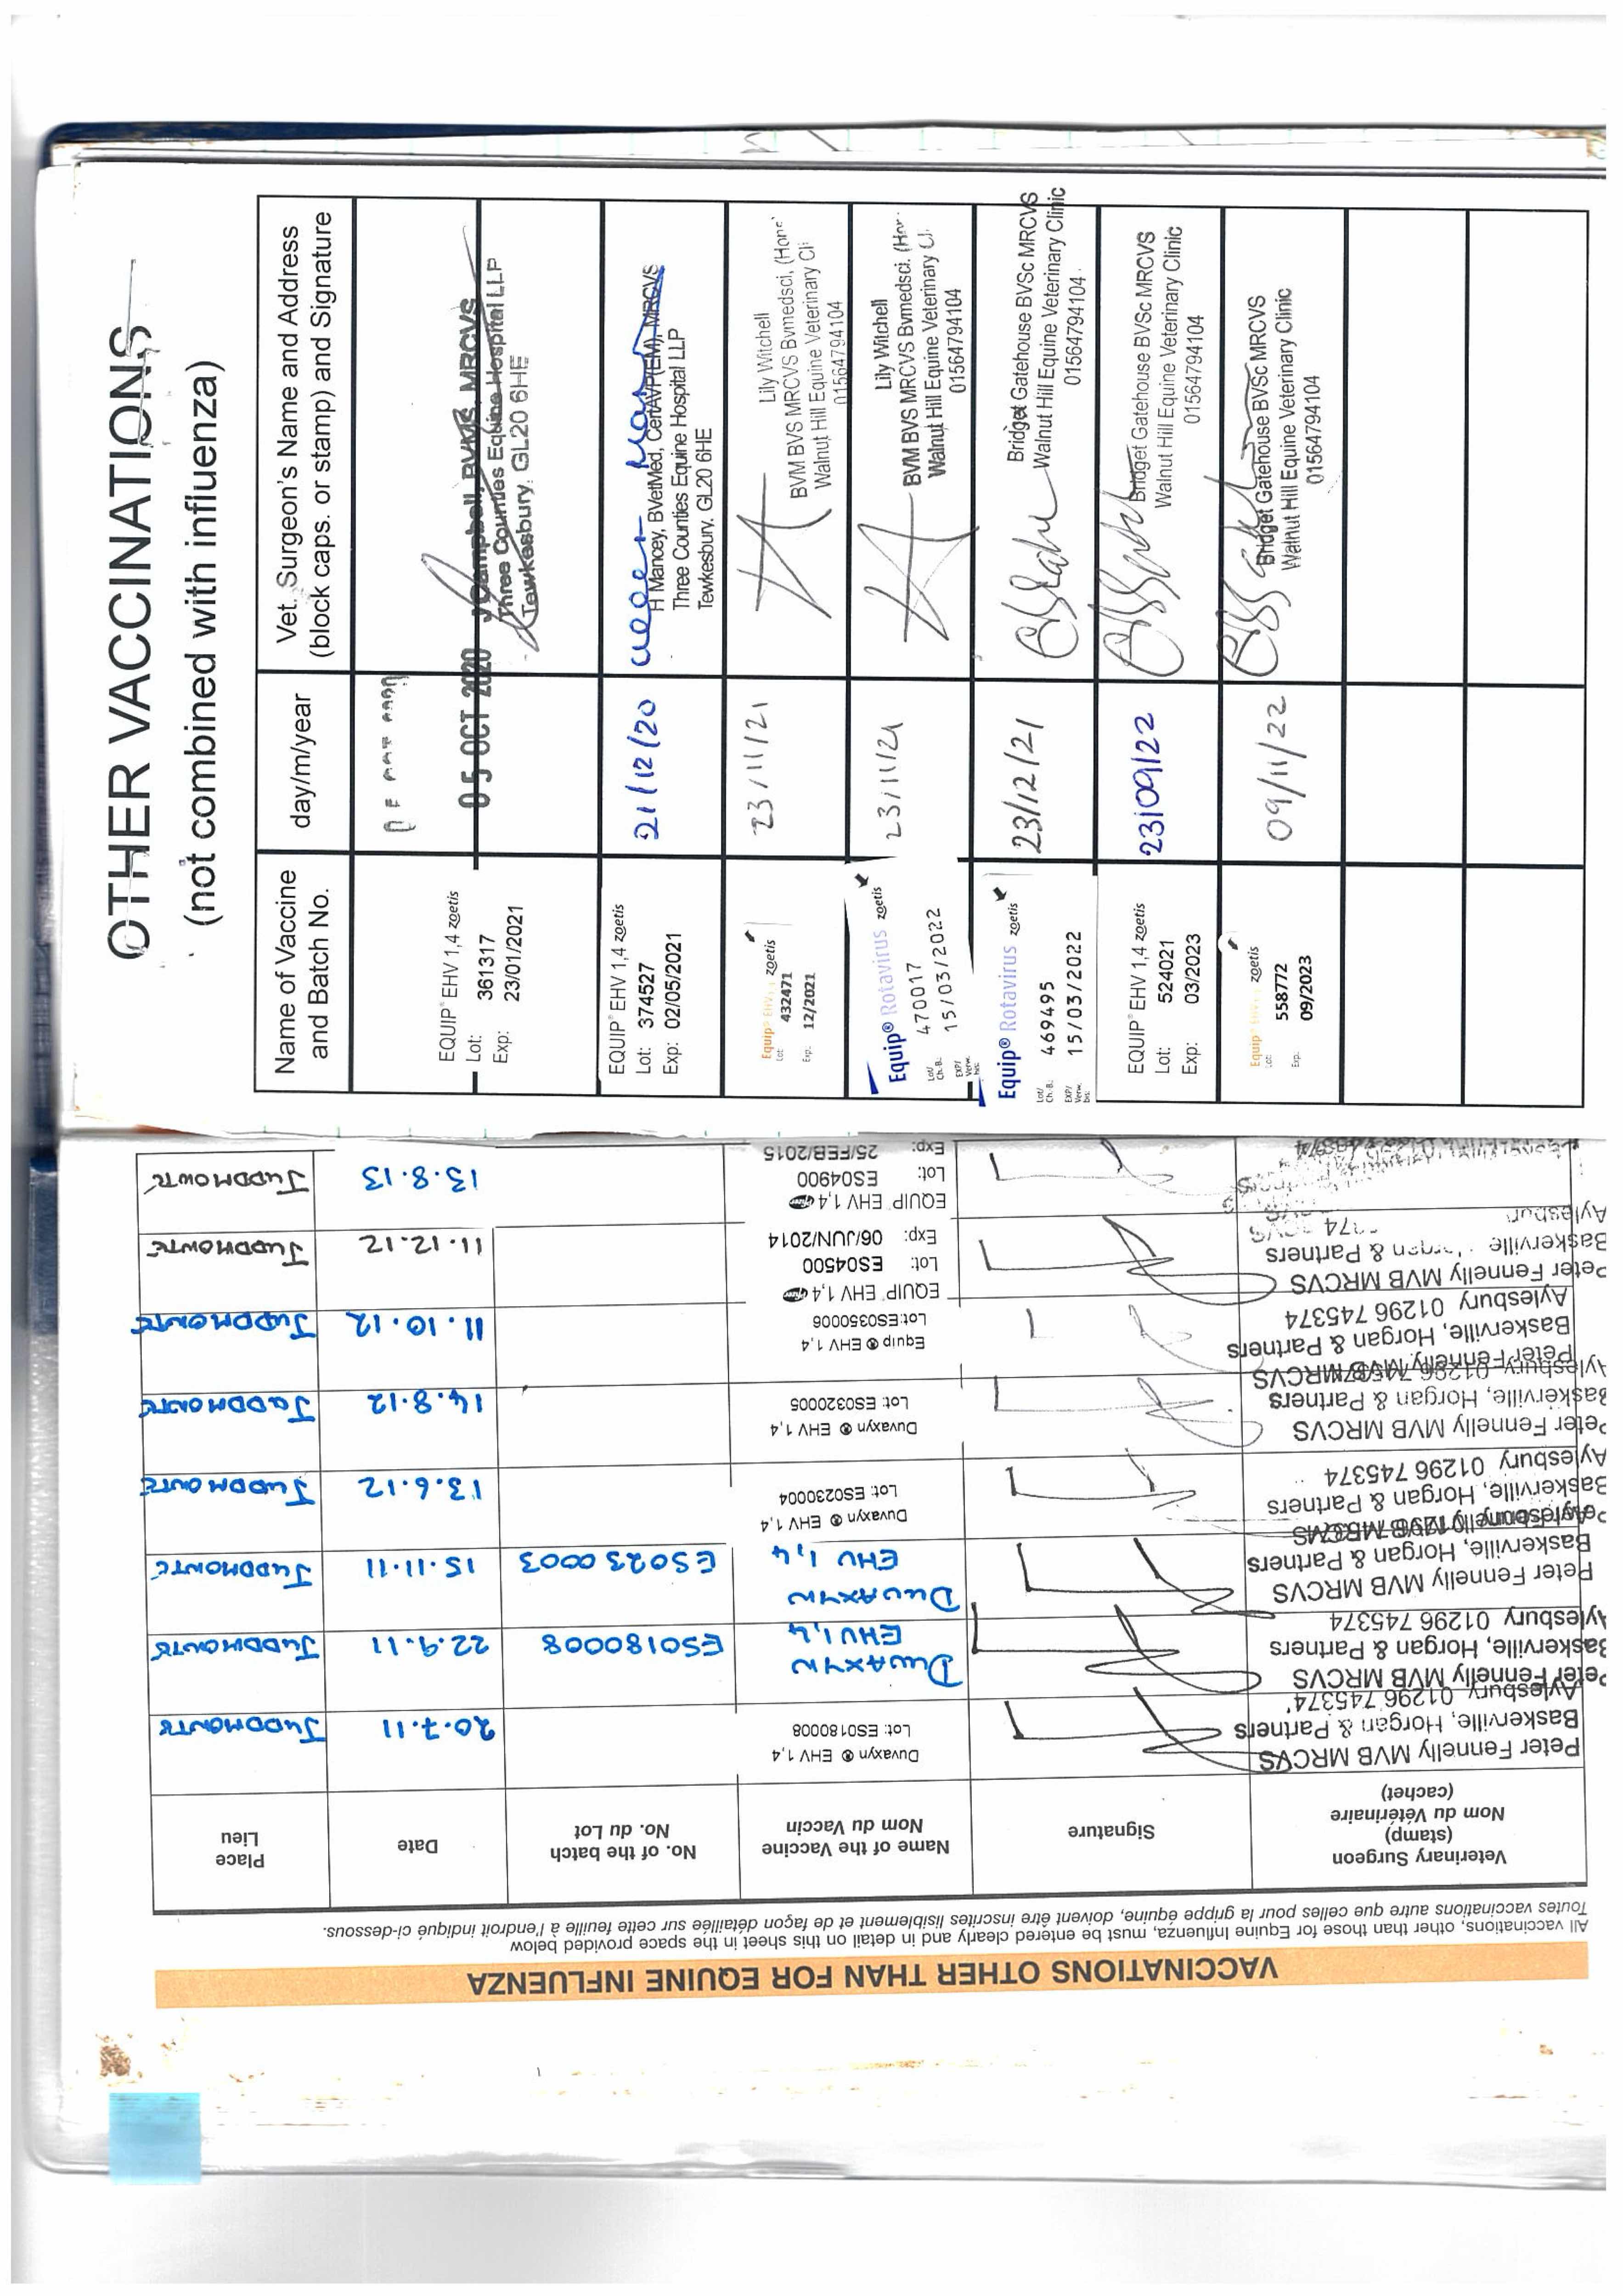 OTHER VACCINATIONS
(not combined with influenza)
Name of Vaccine
and Batch No.
day/m/year
Vet. Surgeon's Name and Address
(block caps. or stamp) and Signature
EQUIP® EHV 1,4 zoetis
Lot: 361317
Exp: 23/01/2021
05 OCT 2020
J Campbell, BVMS, MRCVS
Three Counties Equine Hospital LLP
Tewkesbury. GL20 6HE
EQUIP® EHV 1,4 zoetis
Lot: 374527
Exp: 02/05/2021
21/12/20
H Mancey, BVetMed, CertAVP(EM), MRCVS
Three Counties Equine Hospital LLP
Tewkesbury. GL20 6HE
Equip® EHV 1,4 zoetis
Lot: 432471
Exp. 12/2021
23/11/21
Lily Witchell
BVM BVS MRCVS Bvmedsci, (Hons
Walnut Hill Equine Veterinary Cli
01564794104
Equip® Rotavirus zoetis
Lot/
Ch.-B.: 470017
EXP/
Verw.
bis: 15/03/2022
23/11/21
Lily Witchell
BVM BVS MRCVS Bvmedsci. (Hor
Walnut Hill Equine Veterinary Cl
01564794104
Equip® Rotavirus zoetis
Lot/
Ch.-B.: 469495
EXP/
Verw.
bis: 15/03/2022
23/12/21
Bridget Gatehouse BVSc MRCVS
Walnut Hill Equine Veterinary Clinic
01564794104
EQUIP® EHV 1,4 zoetis
Lot: 524021
Exp: 03/2023
23/09/22
Bridget Gatehouse BVSc MRCVS
Walnut Hill Equine Veterinary Clinic
01564794104
Equip® EHV 1,4 zoetis
Lot: 558772
Exp. 09/2023
09/11/22
Bridget Gatehouse BVSc MRCVS
Walnut Hill Equine Veterinary Clinic
01564794104
VACCINATIONS OTHER THAN FOR EQUINE INFLUENZA
All vaccinations, other than those for Equine Influenza, must be entered clearly and in detail on this sheet in the space provided below
Toutes vaccinations autre que celles pour la grippe équine, doivent être inscrites lisiblement et de façon détaillée sur cette feuille à l'endroit indiqué ci-dessous.
Veterinary Surgeon
(stamp)
Nom du Vétérinaire
(cachet)
Signature
Name of the Vaccine
Nom du Vaccin
No. of the batch
No. du Lot
Date
Place
Lieu
Peter Fennelly MVB MRCVS
Baskerville, Horgan & Partners
Aylesbury 01296 745374
Duvaxyn ® EHV 1,4
Lot: ES0180008
20.7.11
JUDDMONTE
Peter Fennelly MVB MRCVS
Baskerville, Horgan & Partners
Aylesbury 01296 745374
DUVAXYN
EHV 1,4
ES0180008
22.9.11
JUDDMONTE
Peter Fennelly MVB MRCVS
Baskerville, Horgan & Partners
Aylesbury 01296 745374
DUVAXYN
EHV 1,4
ES0230003
15.11.11
JUDDMONTE
Peter Fennelly MVB MRCVS
Baskerville, Horgan & Partners
Aylesbury 01296 745374
Duvaxyn ® EHV 1,4
Lot: ES0230004
13.6.12
JUDDMONTE
Peter Fennelly MVB MRCVS
Baskerville, Horgan & Partners
Aylesbury 01296 745374
Duvaxyn ® EHV 1,4
Lot: ES0320005
14.8.12
JUDDMONTE
Peter Fennelly MVB MRCVS
Baskerville, Horgan & Partners
Aylesbury 01296 745374
Equip ® EHV 1,4
Lot:ES0350006
11.10.12
JUDDMONTE
Peter Fennelly MVB MRCVS
Baskerville, Horgan & Partners
Aylesbury
EQUIP EHV 1,4 Pfizer
Lot: ES04500
Exp: 06/JUN/2014
11.12.12
JUDDMONTE
EQUIP EHV 1,4 Pfizer
Lot: ES04900
Exp: 25/FEB/2015
13.8.13
JUDDMONTE